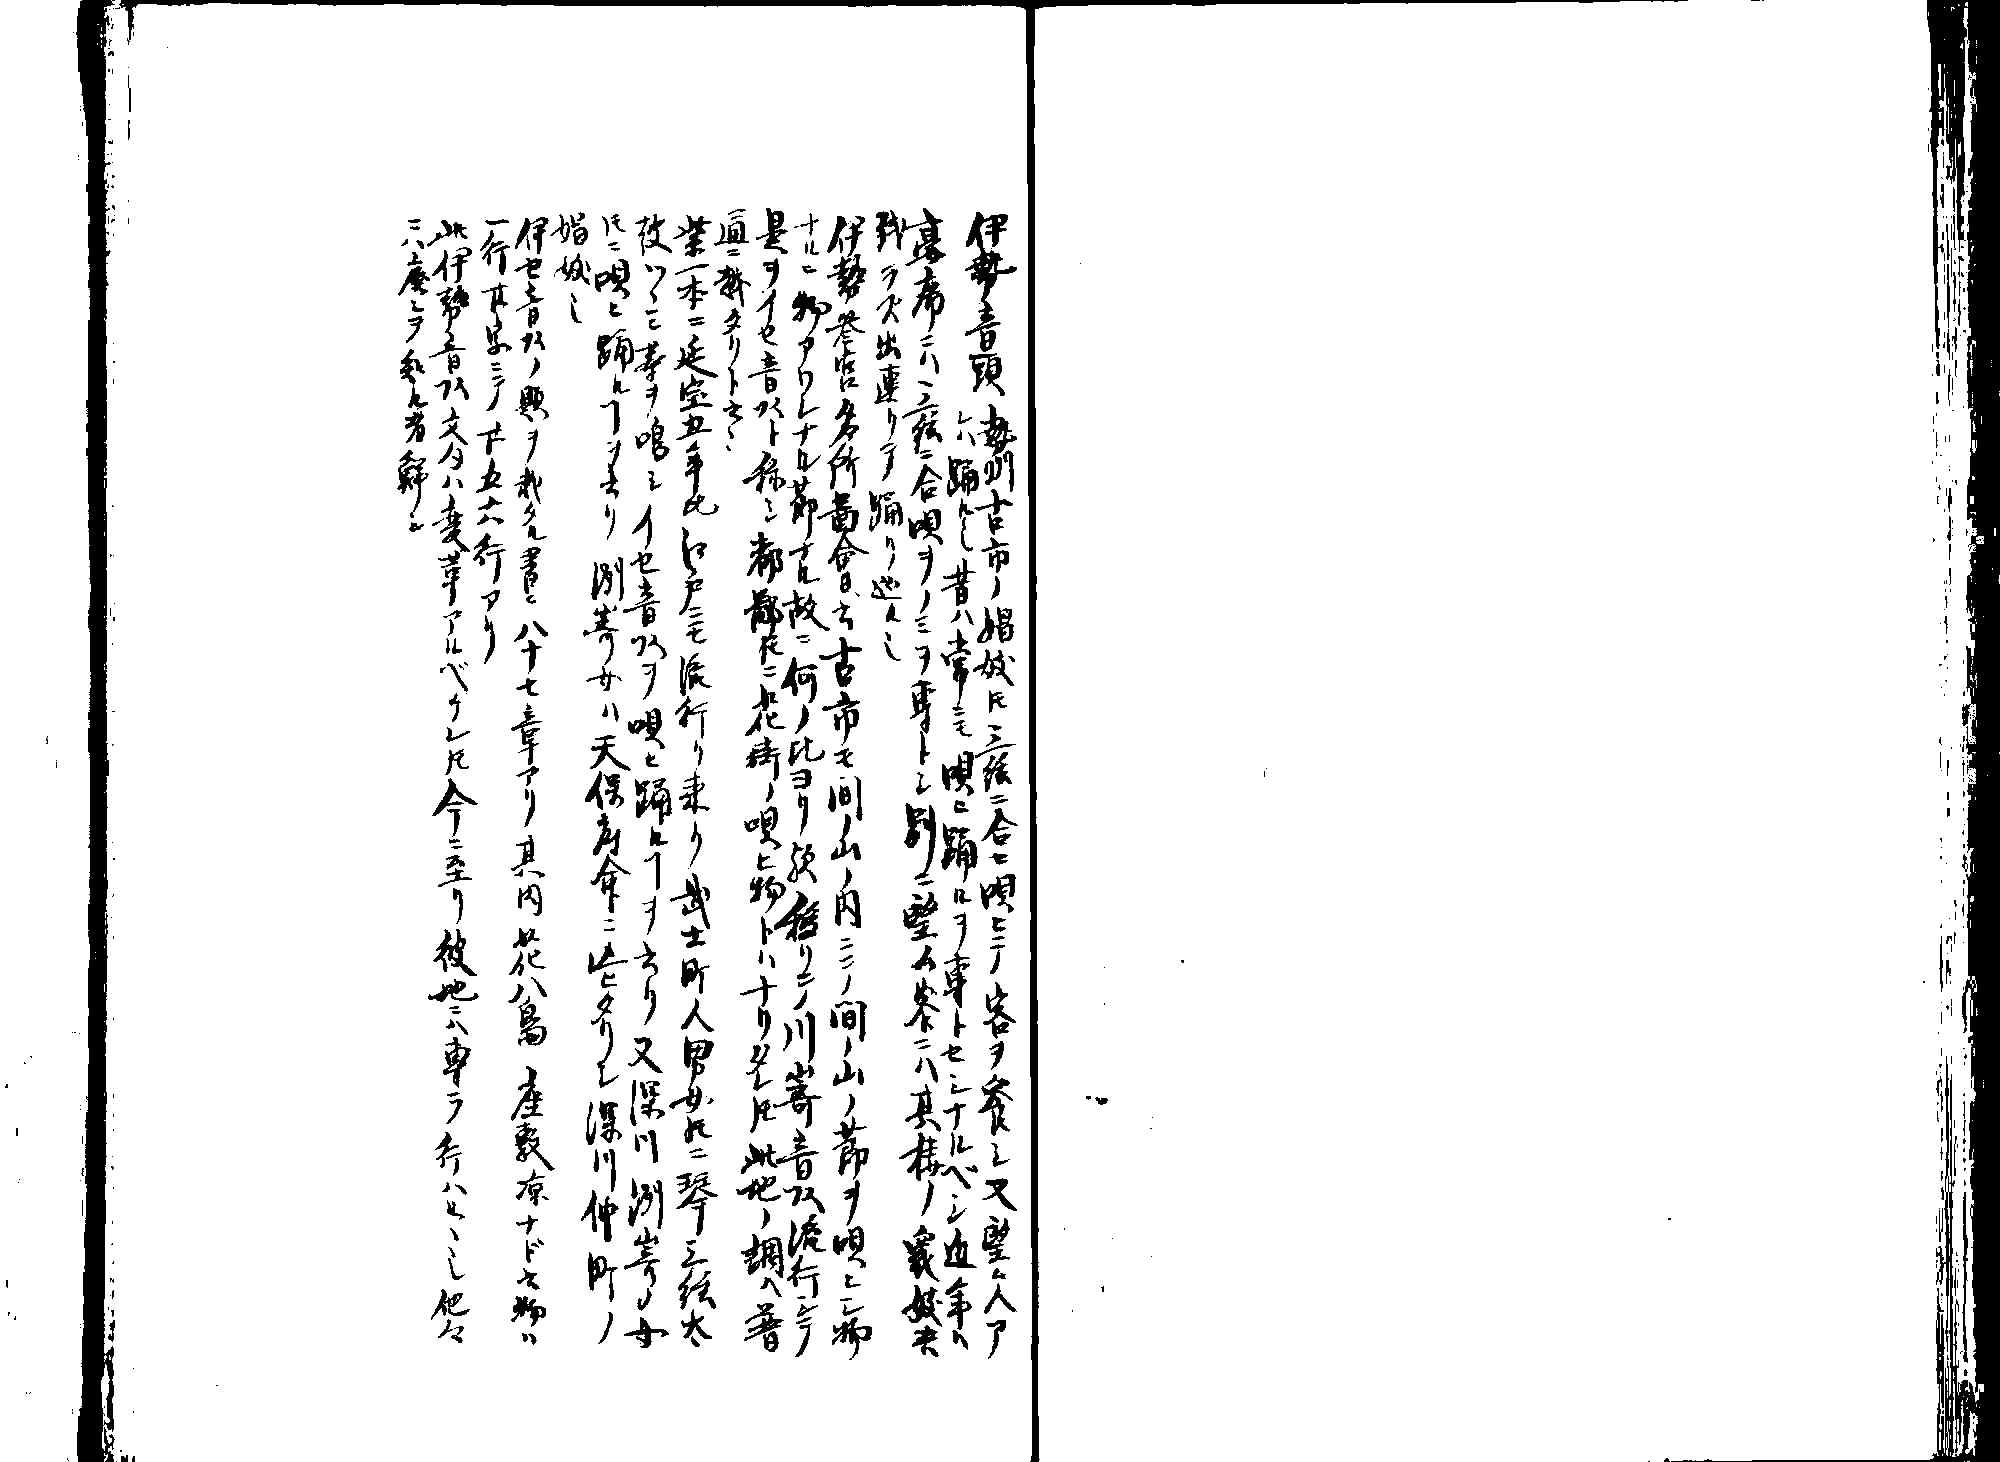 伊勢音頭 勢州古市ノ娼妓𪜈三絃ニ合セ唄ヒテノ客ヲ饗シ又望ム人ア
レハ踊ル也昔ハ常ニモ唄ヒ踊ルヲ専トセシナルベシ近年ハ
高席ニハ三絃ニ合唄ヲノミヲ専トシ別ニ望ム客ニハ其楼ノ衆妓夫
出連リテ踊リ也
伊勢参宮名所圖會ニ云古市モ間ノ山ノ内ニテノ間ノ山ノ節ヲ唄ヒシ物
ナルニ物アワレナル節ナル故ニ何ノ比ヨリ欤移リテノ川崎音頭流行シテ
是ヲイセ音頭ト称シ都鄙𪜈ニ花街ノ唄ヒ物トハナリタレ𪜈此地ノ調ヘ普
通ニ異タリト云々
紫一本ニ延宝五年比江戸ニモ流行リ来リ武士町人男女𪜈ニ琴三絃太
鼓ツヾミ等ヲ鳴シイセ音頭ヲ唄ヒ踊ルヿヲ云リ又深川洲嵜ノ女
𪜈ニ唄ヒ踊ルヿヲ云リ洲嵜女ハ天保府命ニ止ヒタリシ深川仲町ノ
娼妓也
伊セ音頭ノ題ヲ載タル書ニ八十七章アリ其内花八島 座敷凉ナド云物ハ
一行其余ミテノ下五六行アリ
此伊勢音頭文句ハ変革アルベケレ𪜈今ニ至リ彼地ニハ専ラ行ハルヽ也他々
ニハ廃シヲ知ル者鮮シ